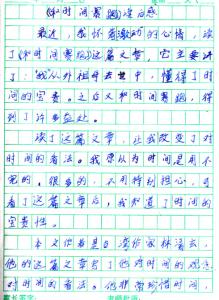 《和时间赛跑》读后感
最近，我怀着激动的心情，读
了《和时间赛跑》这篇文章，它主要讲
了：我从外祖母去世中，懂得了时
间的宝贵。之后又和时间赛跑，得
到了许多益处。
读了这篇文章，让我改变了对
时间的看法。我原以为时间是用不
完的，很多的，不用特别担心，可
看了这篇文章后，我知道了时间的
宝贵性。
本文作者是台湾作家林清玄，
他的这篇文章写了他对时间的观念
时间的看法。他非常珍惜时间，对
家长签字： 老师批语：